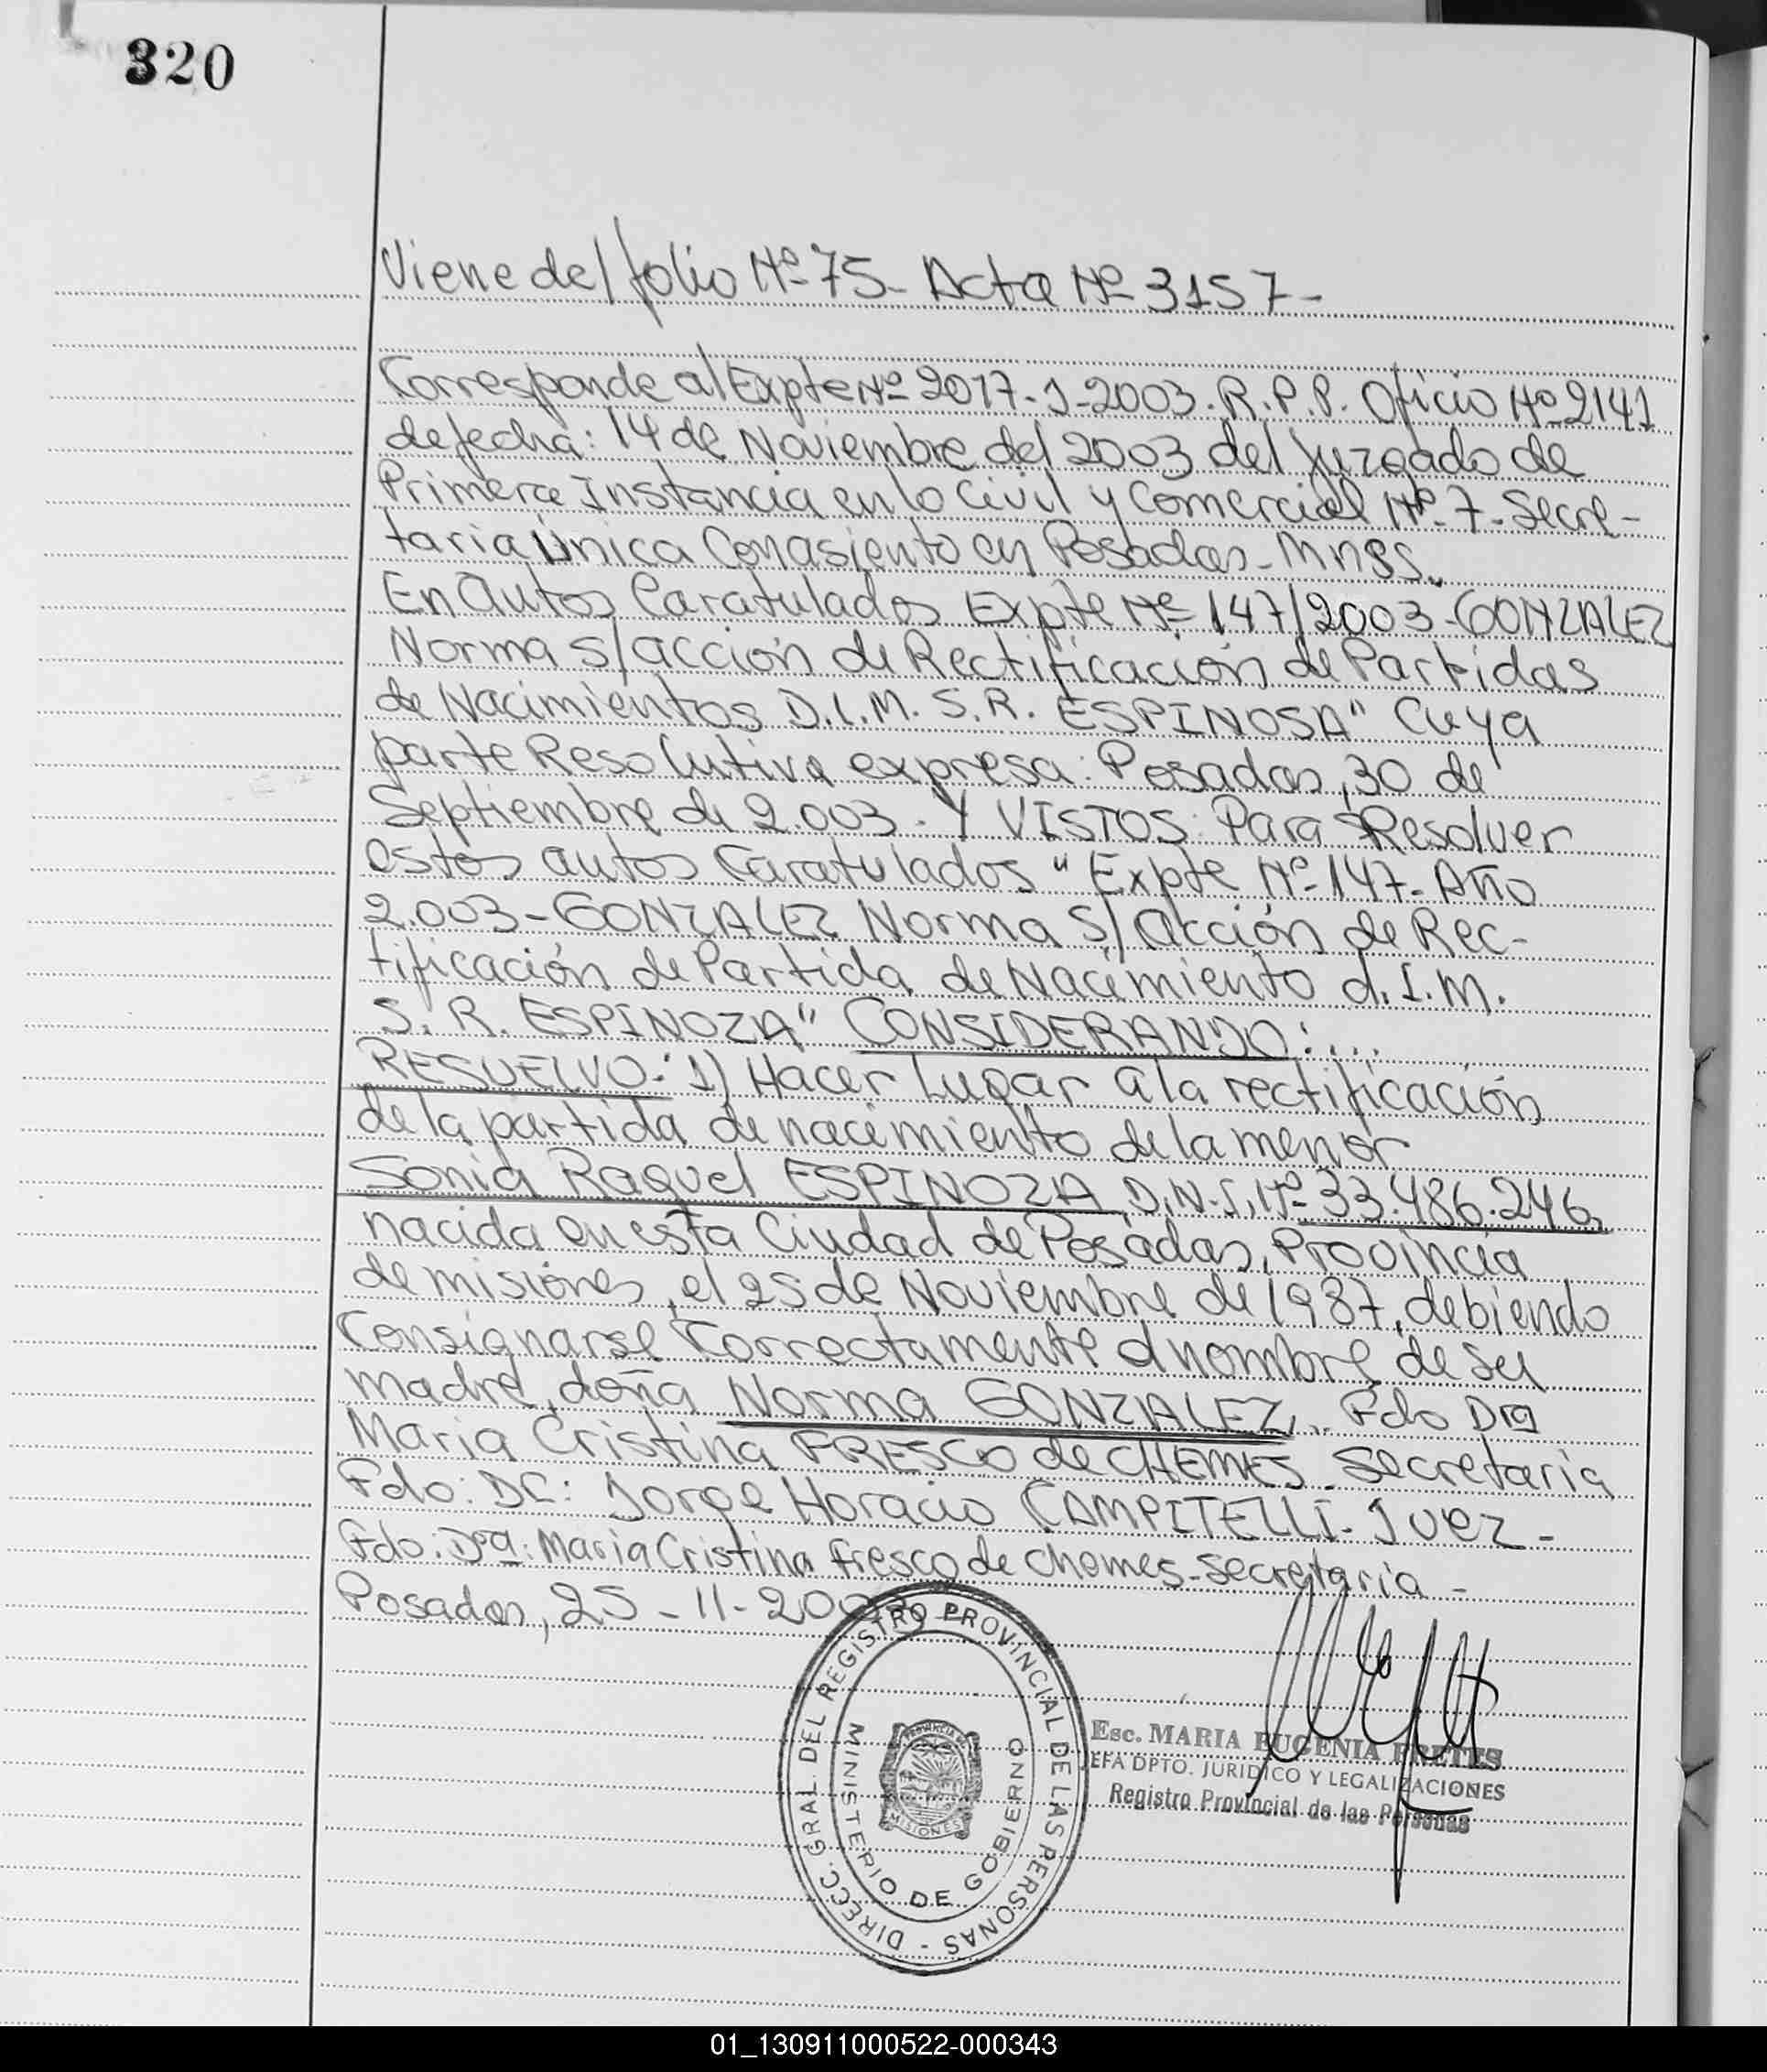 320
Viene del folio Nº 75- Acta Nº 3157-
Corresponde al Expte Nº 2017-J-2003. R.P.P. Oficio Nº 2141
de fecha: 14 de Noviembre del 2003 del Juzgado de
Primera Instancia en lo Civil y Comercial Nº 7- Secre-
taria Única Con asiento en Posadas- Mnes.
En autos Caratulados Expte Nº 147/2003-GONZALEZ
Norma S/acción de Rectificación de Partidas
de Nacimientos D.I.M. S.R. ESPINOSA" Cuya
parte Resolutiva expresa: Posadas, 30 de
Septiembre de 2.003. Y VISTOS: Para Resolver
estos autos Caratulados "Expte Nº 147- Año
2.003-GONZALEZ Norma S/ acción de Rec-
tificación de Partida de Nacimiento d.I.M.
S. R. ESPINOZA" CONSIDERANDO:...
RESUELVO: 1) Hacer Lugar a la rectificación
de la partida de nacimiento de la menor
Sonia Raquel ESPINOZA D.N.I. Nº 33.486.246,
nacida en esta Ciudad de Posadas, Provincia
de misiones, el 25 de Noviembre de 1987, debiendo
Consignarse Correctamente el nombre de su
madre, doña Norma GONZALEZ,. Fdo Dra
Maria Cristina FRESCO de CHEMES. Secretaria
Fdo: Dr: Jorge Horacio CAMPITELLI- Juez-
Fdo: Dra: Maria Cristina Fresco de Chemes-Secretaria-
Posadas, 25-11-2003
DIRECC. GRAL DEL REGISTRO PROVINCIAL DE LAS PERSONAS -
MINISTERIO DE GOBIERNO
PROVINCIA DE
MISIONES
Esc. MARIA EUGENIA FRETES
EFA DPTO. JURIDICO Y LEGALIZACIONES
Registro Provincial de las Personas
01_130911000522-000343